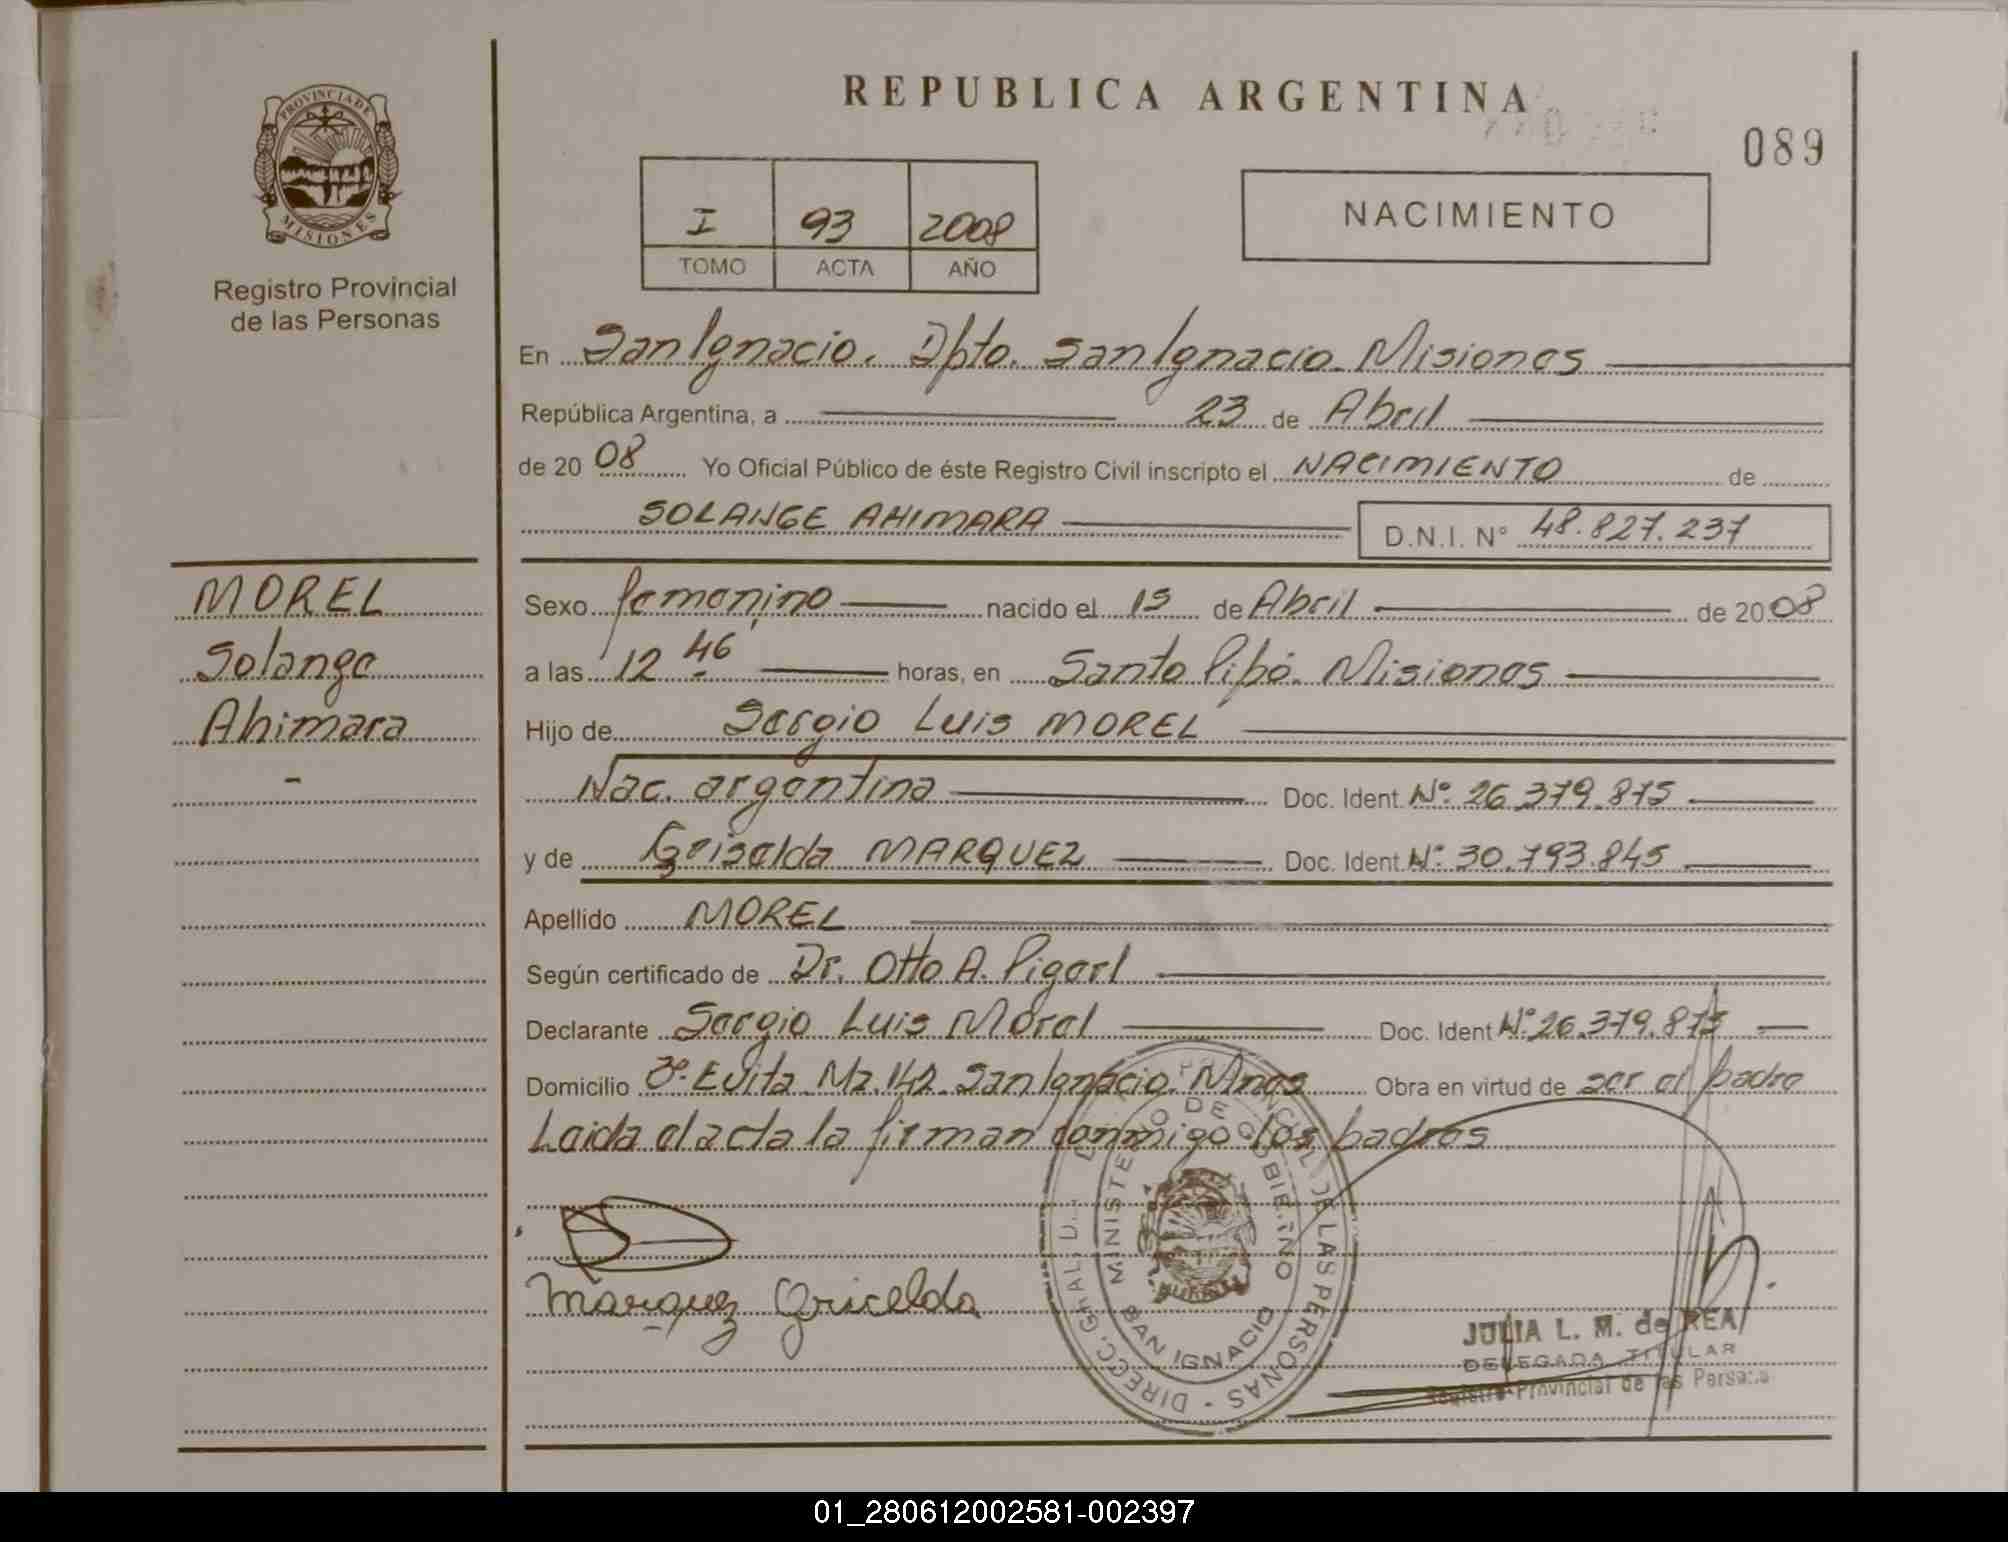 REPUBLICA ARGENTINA
089
PROVINCIA DE
MISIONES
Registro Provincial
de las Personas
I 93 2008
TOMO ACTA AÑO
NACIMIENTO
En San Ignacio. Dpto. San Ignacio. Misiones
República Argentina, a 23 de Abril
de 20 08 Yo Oficial Público de éste Registro Civil inscripto el NACIMIENTO de
SOLANGE AHIMARA D.N.I. Nº 48.827.237
MOREL
Solange
Ahimara
-
Sexo femenino nacido el 15 de Abril de 20 08
a las 12 46 horas, en Santo Pipó. Misiones
Hijo de Sergio Luis MOREL
Nac. argentina Doc. Ident. Nº 26.379.875
y de Griselda MARQUEZ Doc. Ident. Nº 30.793.845
Apellido MOREL
Según certificado de Dr. Otto A.
Declarante Sergio Luis Morel Doc. Ident Nº 26.379.875
Domicilio Bº Evita Mz. 142 San Ignacio. Mnes Obra en virtud de ser el padre
Leida el acta la firman conmigo los padres
Marquez Gricelda
MINISTERIO DE GOBIERNO
SAN IGNACIO
DIRECC. GRAL. DE LAS PERSONAS
JULIA L. M. de REA
DELEGADA TITULAR
Registro Provincial de las Personas
01_280612002581-002397